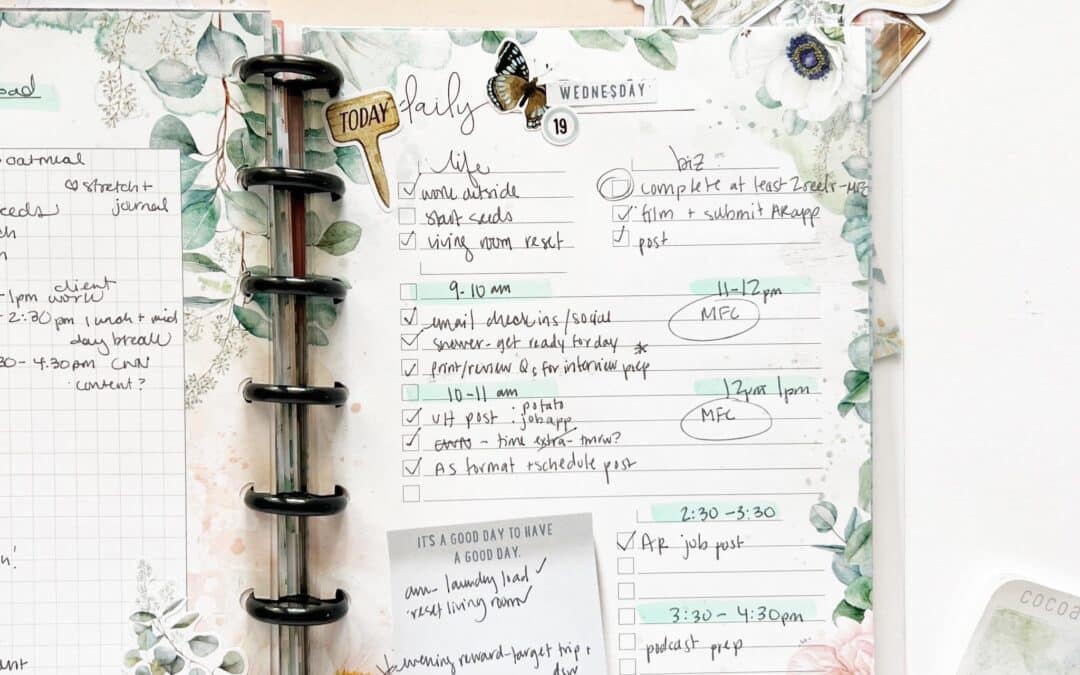 oad
oatmeal
♡ stretch +
journal
eeds
ch
n
client
-1pm work
- 2:30 pm lunch + mid
day break
30 - 4:30pm CNN
content?
n!
ent
TODAY
daily
WEDNESDAY
19
life
work outside
start seeds
living room reset
biz
complete at least 2 reels - MFC
film + submit AR app
post
9-10 am
11-12pm
email check ins/social
MFC
shower - get ready for day *
print/review Qs for interview prep
10-11 am
12pm 1pm
VH post : potato
job app
MFC
- time extra - tmrw?
AS format + schedule post
2:30 - 3:30
AR job post
3:30 - 4:30pm
podcast prep
IT'S A GOOD DAY TO HAVE
A GOOD DAY.
am laundry load ✓
reset living room ✓
evening reward - target trip +
COCOA